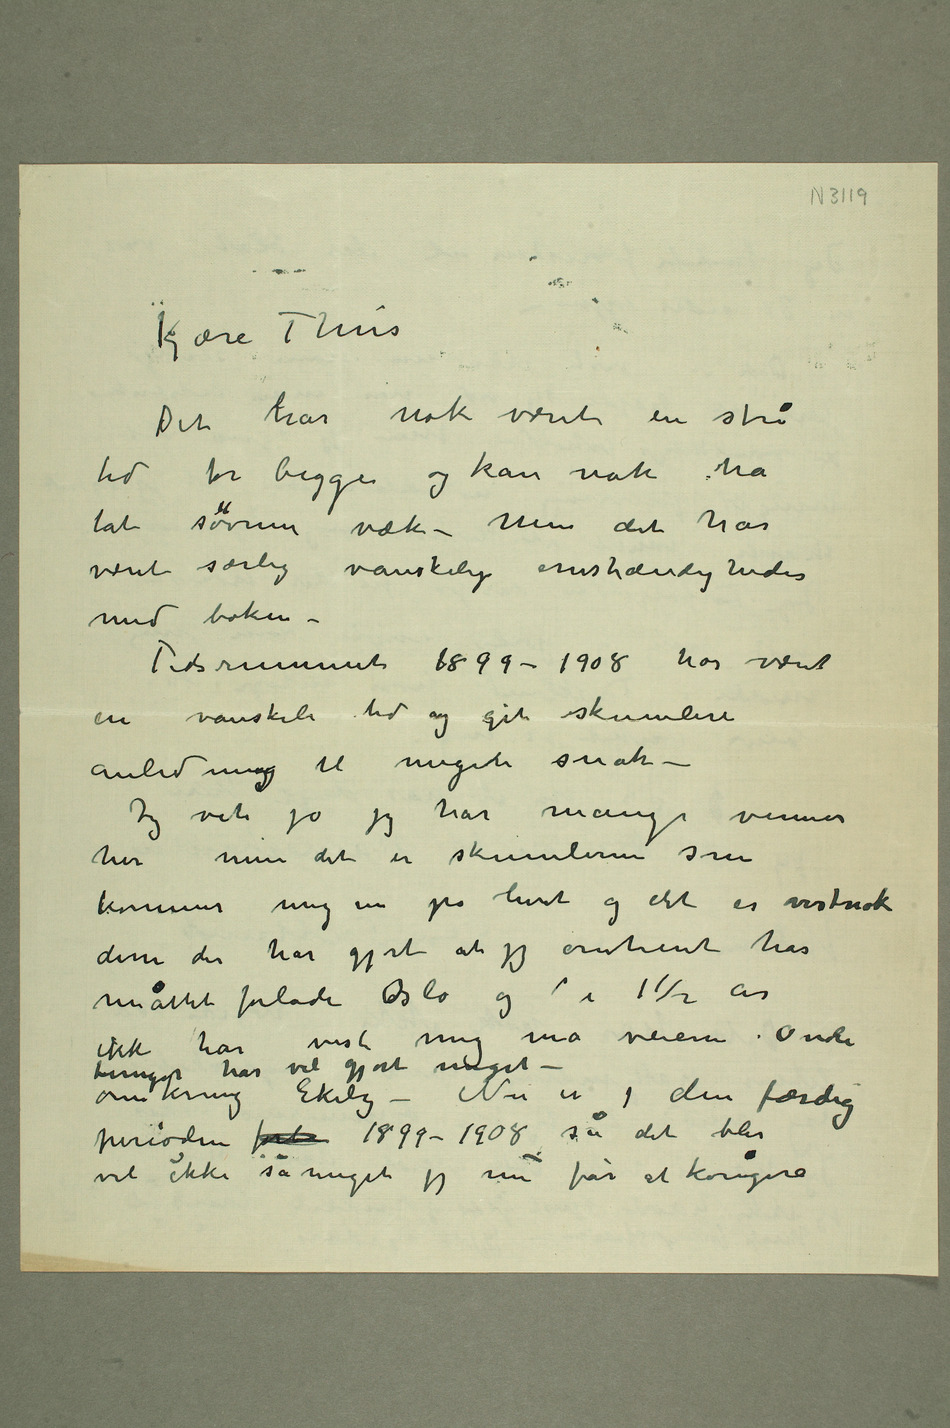 N 3119
Kjære Thiis
Det har nok været en stri
tid for begge og kan nok ha
tat søvnen væk – Men det har
været særlig vanskelige omstændigheder
med boken –
Tidsrummet 1899–1908 har været
en vanskeli tid og git skumlere
anledning til meget snak –
Jeg vet jo jeg har mange venner
her men det er skumlerne som
kommer mig ind på livet og det er vistnok
dem der har gjort at jeg omtrent har
måttet forlade Oslo og i 1 1/2 år
ikke har vist mig på veiene Onde
tunger har vel gjort meget –
omkring Ekely – Nu er den færdig
perioden 1899–1908 så det blir
vel ikke så meget jeg nu får at korigere